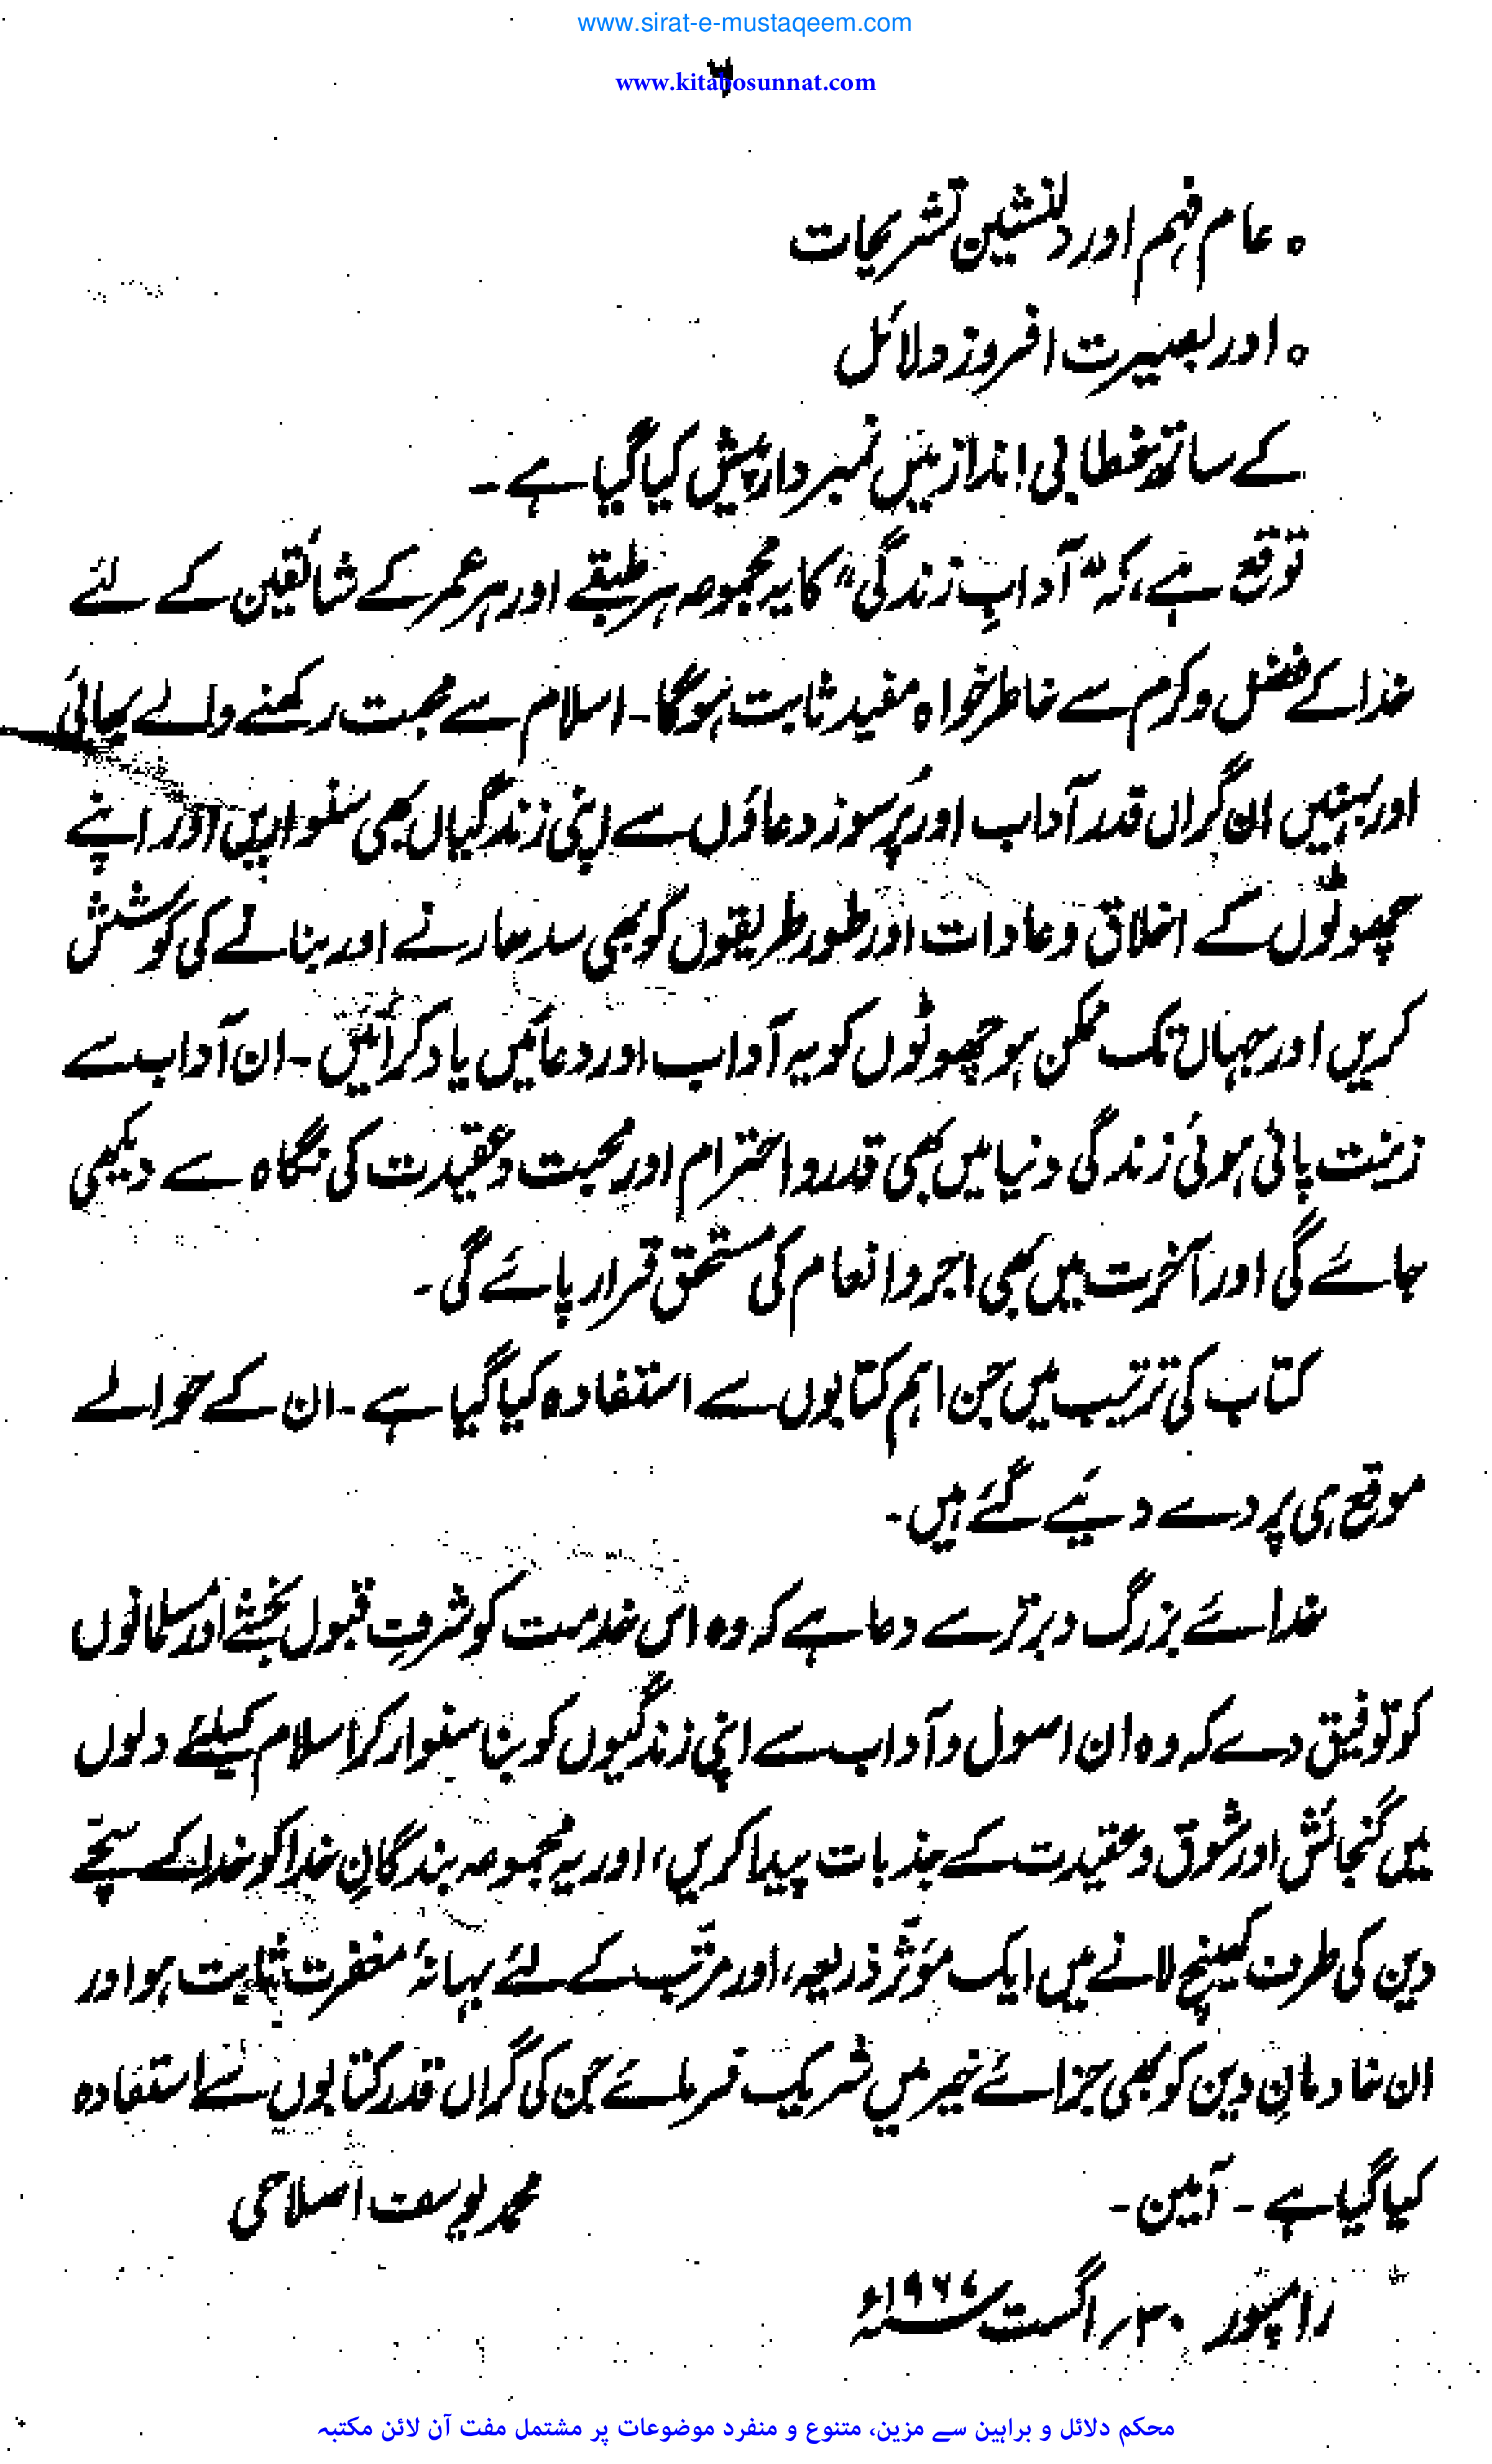 www.sirat-e-mustaqeem.com
۶
www.kitabosunnat.com
○ عام فہم اور دلنشین تشریحات
○ اور بصیرت افروز دلائل
کے ساتھ خطابی انداز میں نمبر وار پیش کیا گیا ہے۔
توقع ہے، کہ "آدابِ زندگی" کا یہ مجموعہ ہر طبقے اور ہر عمر کے شائقین کے لئے
خدا کے فضل و کرم سے خاطر خواہ مفید ثابت ہوگا۔ اسلام سے محبت رکھنے والے بھائی
اور بہنیں ان گراں قدر آداب اور پُرسوز دعاؤں سے اپنی زندگیاں بھی سنواریں اور اپنے
چھوٹوں کے اخلاق و عادات اور طور طریقوں کو بھی سدھارنے اور بنانے کی کوشش
کریں اور جہاں تک ممکن ہو چھوٹوں کو یہ آداب اور دعائیں یاد کرائیں۔ ان آداب سے
زینت پائی ہوئی زندگی دنیا میں بھی قدر و احترام اور محبت و عقیدت کی نگاہ سے دیکھی
جائے گی اور آخرت میں بھی اجر و انعام کی مستحق قرار پائے گی۔
کتاب کی ترتیب میں جن اہم کتابوں سے استفادہ کیا گیا ہے۔ ان کے حوالے
موقع ہی پر دے دیئے گئے ہیں۔
خدائے بزرگ و برتر سے دعا ہے کہ وہ اس خدمت کو شرفِ قبول بخشے اور مسلمانوں
کو توفیق دے کہ وہ ان اصول و آداب سے اپنی زندگیوں کو بنا سنوار کر اسلام کیلئے دلوں
میں گنجائش اور شوق و عقیدت کے جذبات پیدا کریں، اور یہ مجموعہ بندگانِ خدا کو خدا کے سچے
دین کی طرف کھینچ لانے میں ایک مؤثر ذریعہ، اور مرتّب کے لئے بہانۂ مغفرت ثابت ہو اور
ان خادمانِ دین کو بھی جزائے خیر میں شریک فرمائے جن کی گراں قدر کتابوں سے استفادہ
کیا گیا ہے۔ آمین۔ محمد یوسف اصلاحی
رامپور ۳۰؍ اگست ۱۹۶۷ء
محکم دلائل و براہین سے مزین، متنوع و منفرد موضوعات پر مشتمل مفت آن لائن مکتبہ